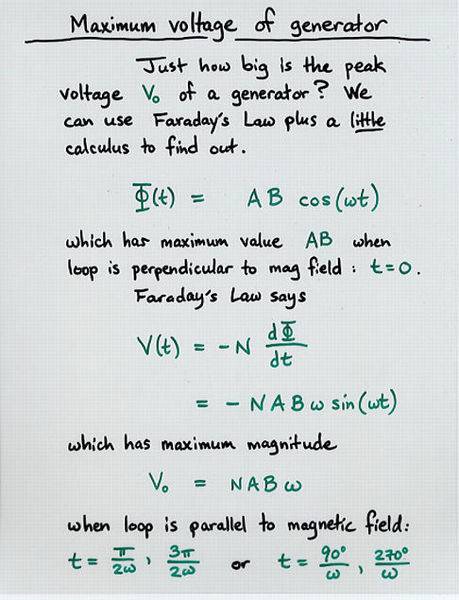 Maximum voltage of generator
Just how big is the peak
voltage V₀ of a generator? We
can use Faraday's Law plus a little
calculus to find out.
Φ(t) = AB cos(ωt)
which has maximum value AB when
loop is perpendicular to mag field: t=0.
Faraday's Law says
V(t) = -N dΦ/dt
= - NABω sin(ωt)
which has maximum magnitude
V₀ = NABω
when loop is parallel to magnetic field:
t = π/2ω, 3π/2ω or t = 90°/ω, 270°/ω